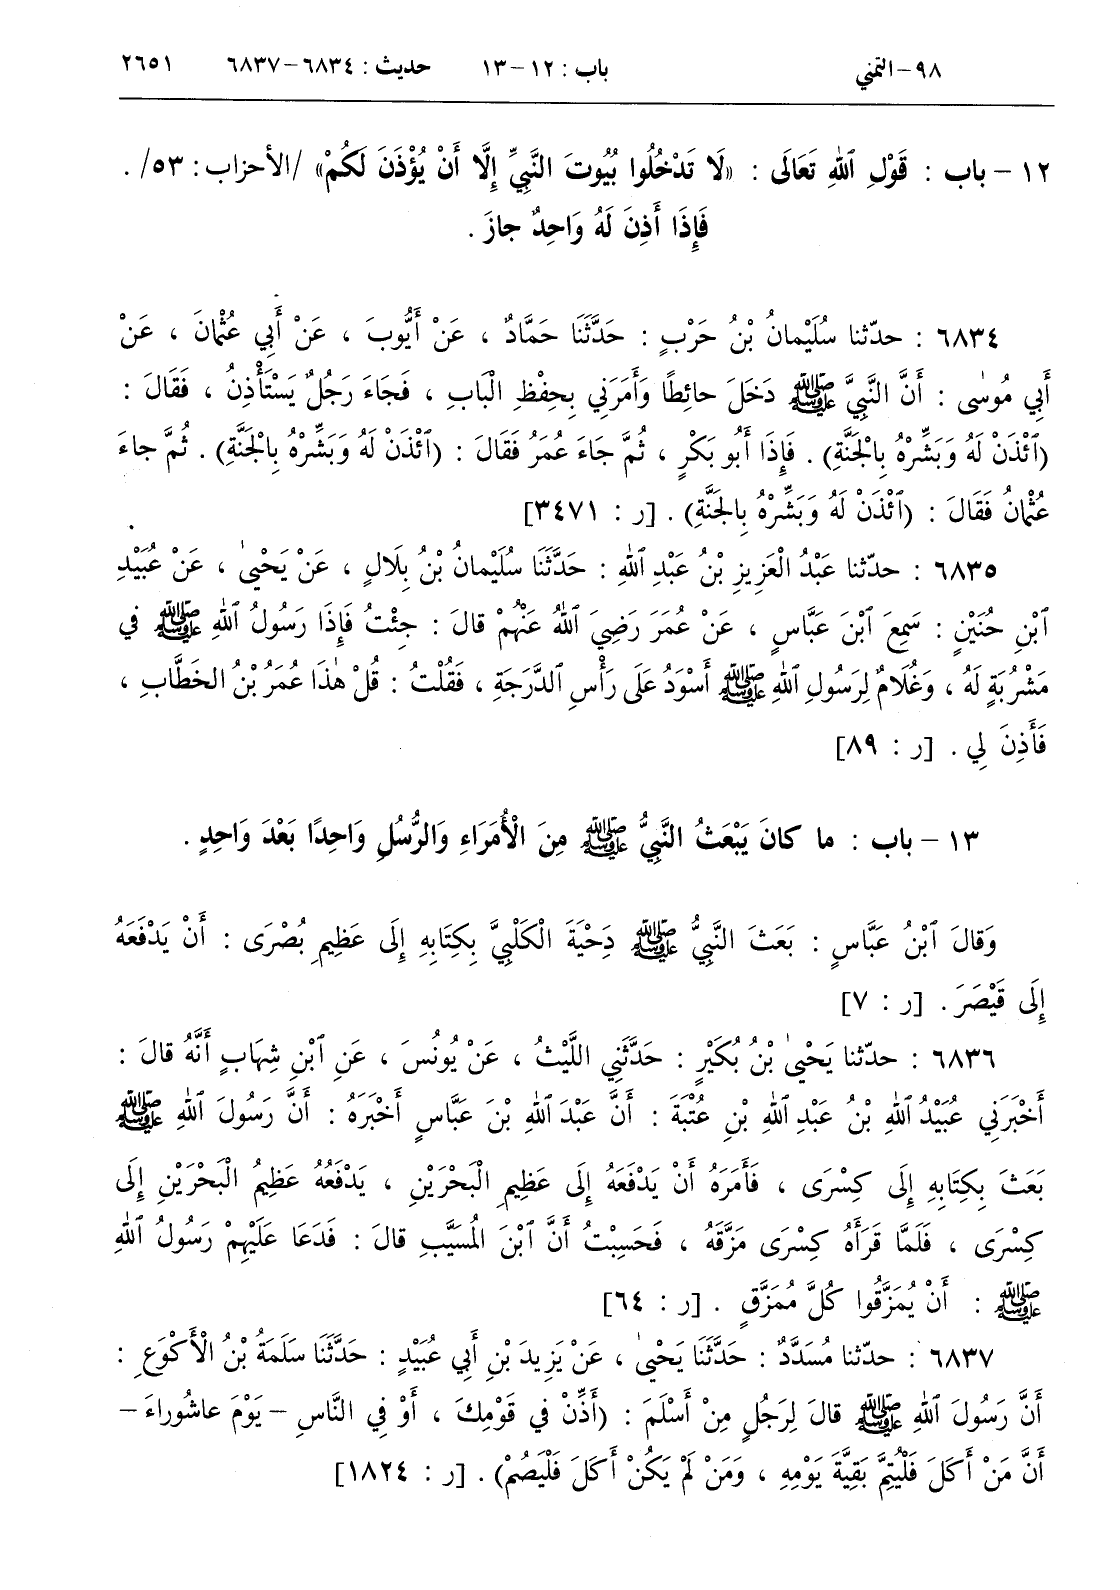 ٩٨-التمني باب : ١٢-١٣ حديث : ٦٨٣٤-٦٨٣٧ ٢٦٥١
١٢ - باب : قَوْلِ ٱللهِ تَعَالَى : «لَا تَدْخُلُوا بُيُوتَ النَّبِيِّ إِلَّا أَنْ يُؤْذَنَ لَكُمْ» /الأحزاب: ٥٣/ .
فَإِذَا أَذِنَ لَهُ وَاحِدٌ جازَ .
٦٨٣٤ : حدّثنا سُلَيْمانُ بْنُ حَرْبٍ : حَدَّثَنَا حَمَّادٌ ، عَنْ أَيُّوبَ ، عَنْ أَبِي عُثْمانَ ، عَنْ
أَبِي مُوسٰى : أَنَّ النَّبِيَّ ﷺ دَخَلَ حائِطًا وَأَمَرَنِي بِحِفْظِ الْبَابِ ، فَجَاءَ رَجُلٌ يَسْتَأْذِنُ ، فَقَالَ :
(ٱئْذَنْ لَهُ وَبَشِّرْهُ بِالْجَنَّةِ) . فَإِذَا أَبُو بَكْرٍ ، ثُمَّ جَاءَ عُمَرُ فَقَالَ : (ٱئْذَنْ لَهُ وَبَشِّرْهُ بِالْجَنَّةِ) . ثُمَّ جاءَ
عُثْمانُ فَقَالَ : (ٱئْذَنْ لَهُ وَبَشِّرْهُ بِالْجَنَّةِ) . [ر : ٣٤٧١]
٦٨٣٥ : حدّثنا عَبْدُ الْعَزِيزِ بْنُ عَبْدِ ٱللهِ : حَدَّثَنَا سُلَيْمانُ بْنُ بِلَالٍ ، عَنْ يَحْيىٰ ، عَنْ عُبَيْدِ
ٱبْنِ حُنَيْنٍ : سَمِعَ ٱبْنَ عَبَّاسٍ ، عَنْ عُمَرَ رَضِيَ ٱللهُ عَنْهُمْ قالَ : جِئْتُ فَإِذَا رَسُولُ ٱللهِ ﷺ في
مَشْرُبَةٍ لَهُ ، وَغُلَامٌ لِرَسُولِ ٱللهِ ﷺ أَسْوَدُ عَلَى رَأْسِ ٱلدَّرَجَةِ ، فَقُلْتُ : قُلْ هٰذَا عُمَرُ بْنُ الخَطَّابِ ،
فَأَذِنَ لِي . [ر : ٨٩]
١٣ - باب : ما كانَ يَبْعَثُ النَّبِيُّ ﷺ مِنَ الْأُمَرَاءِ وَالرُّسُلِ وَاحِدًا بَعْدَ وَاحِدٍ .
وَقالَ ٱبْنُ عَبَّاسٍ : بَعَثَ النَّبِيُّ ﷺ دِحْيَةَ الْكَلْبِيَّ بِكِتَابِهِ إِلَى عَظِيمِ بُصْرَى : أَنْ يَدْفَعَهُ
إِلَى قَيْصَرَ . [ر : ٧]
٦٨٣٦ : حدّثنا يَحْيىٰ بْنُ بُكَيْرٍ : حَدَّثَنِي اللَّيْثُ ، عَنْ يُونُسَ ، عَنِ ٱبْنِ شِهَابٍ أَنَّهُ قالَ :
أَخْبَرَنِي عُبَيْدُ ٱللهِ بْنُ عَبْدِ ٱللهِ بْنِ عُتْبَةَ : أَنَّ عَبْدَ ٱللهِ بْنَ عَبَّاسٍ أَخْبَرَهُ : أَنَّ رَسُولَ ٱللهِ ﷺ
بَعَثَ بِكِتَابِهِ إِلَى كِسْرَى ، فَأَمَرَهُ أَنْ يَدْفَعَهُ إِلَى عَظِيمِ الْبَحْرَيْنِ ، يَدْفَعُهُ عَظِيمُ الْبَحْرَيْنِ إِلَى
كِسْرَى ، فَلَمَّا قَرَأَهُ كِسْرَى مَزَّقَهُ ، فَحَسِبْتُ أَنَّ ٱبْنَ الْمُسَيَّبِ قالَ : فَدَعَا عَلَيْهِمْ رَسُولُ ٱللهِ
ﷺ : أَنْ يُمَزَّقُوا كُلَّ مُمَزَّقٍ . [ر : ٦٤]
٦٨٣٧ : حدّثنا مُسَدَّدٌ : حَدَّثَنَا يَحْيىٰ ، عَنْ يَزِيدَ بْنِ أَبِي عُبَيْدٍ : حَدَّثَنَا سَلَمَةُ بْنُ الْأَكْوَعِ :
أَنَّ رَسُولَ ٱللهِ ﷺ قالَ لِرَجُلٍ مِنْ أَسْلَمَ : (أَذِّنْ في قَوْمِكَ ، أَوْ في النَّاسِ - يَوْمَ عاشُوراءَ -
أَنَّ مَنْ أَكَلَ فَلْيُتِمَّ بَقِيَّةَ يَوْمِهِ ، وَمَنْ لَمْ يَكُنْ أَكَلَ فَلْيَصُمْ) . [ر : ١٨٢٤]